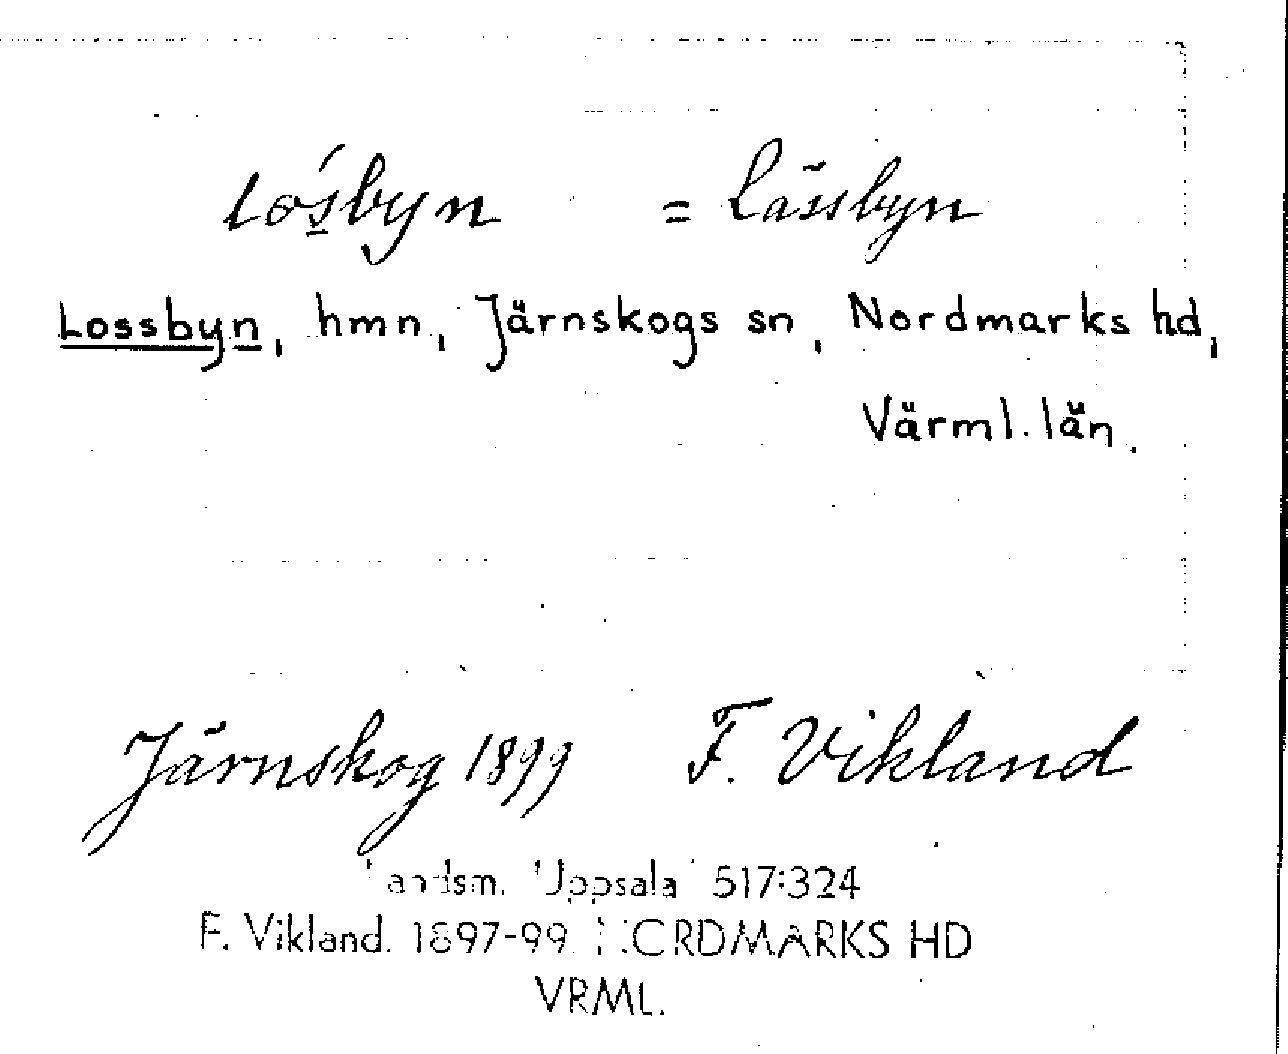 lośbyn = Lässbyn
Lossbyn, hmn, Järnskogs sn, Nordmarks hd,
Värml. län.
Järnskog 1899 F. Vikland
Landsm. Uppsala 517:324
F. Vikland. 1897-99. NORDMARKS HD
VRML.